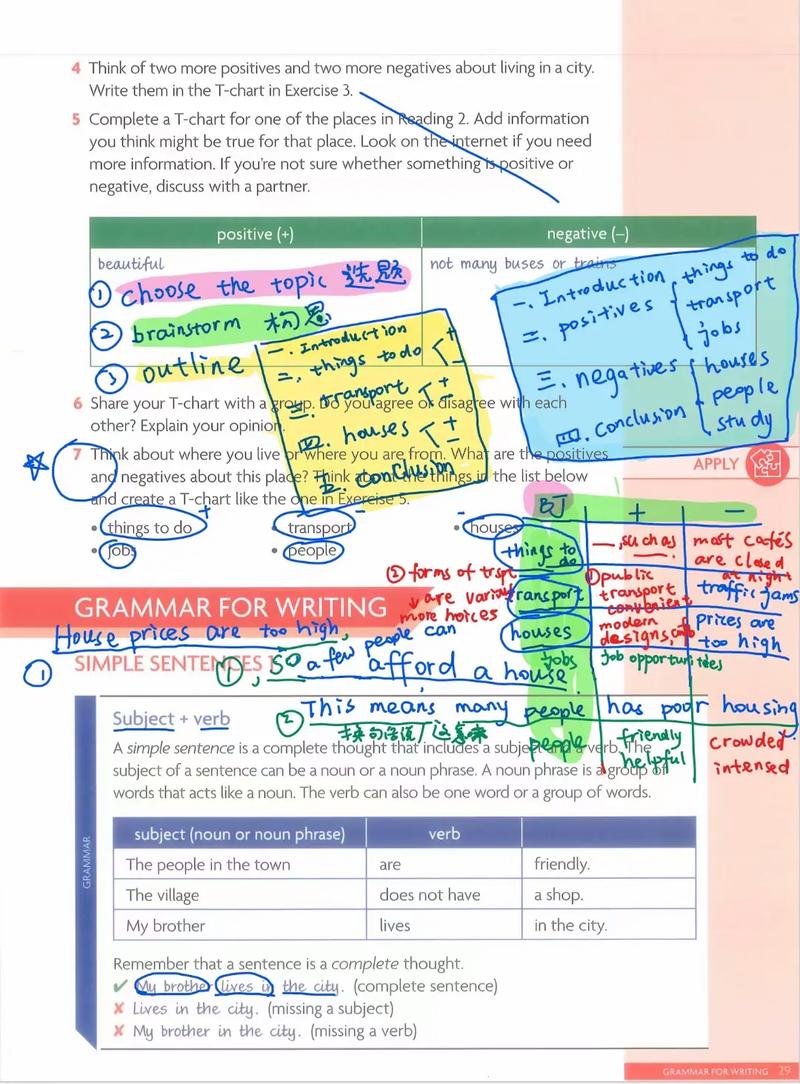 4 Think of two more positives and two more negatives about living in a city.
Write them in the T-chart in Exercise 3.
5 Complete a T-chart for one of the places in Reading 2. Add information
you think might be true for that place. Look on the internet if you need
more information. If you're not sure whether something is positive or
negative, discuss with a partner.
positive (+) negative (–)
beautiful not many buses or trains
① choose the topic 选题
② brainstorm 构思
③ outline
一. Introduction
二. things to do < + −
三. transport < + −
四. houses < + −
五. conclusion
一. Introduction
二. positives { things to do
transport
jobs
三. negatives { houses
people
study
四. conclusion
6 Share your T-chart with a group. Do you agree or disagree with each
other? Explain your opinion.
7 Think about where you live or where you are from. What are the positives
and negatives about this place? Think about the things in the list below
and create a T-chart like the one in Exercise 5.
APPLY
• things to do + • transport − • houses
• jobs • people
BJ + −
things to do —, such as most cafés are closed at night
② forms of trspt are various
more hoices
transport ① public transport convenient traffic jams
houses modern designs, prices are too high
jobs job opportunities
people friendly helpful crowded intensed
GRAMMAR FOR WRITING
House prices are too high,
① SIMPLE SENTENCES
①, so a few people can afford a house.
② This means many people has poor housing
换句话说/这意味
Subject + verb
A simple sentence is a complete thought that includes a subject and a verb. The
subject of a sentence can be a noun or a noun phrase. A noun phrase is a group of
words that acts like a noun. The verb can also be one word or a group of words.
GRAMMAR
subject (noun or noun phrase) verb
The people in the town are friendly.
The village does not have a shop.
My brother lives in the city.
Remember that a sentence is a complete thought.
✔ My brother lives in the city. (complete sentence)
✘ Lives in the city. (missing a subject)
✘ My brother in the city. (missing a verb)
GRAMMAR FOR WRITING 29